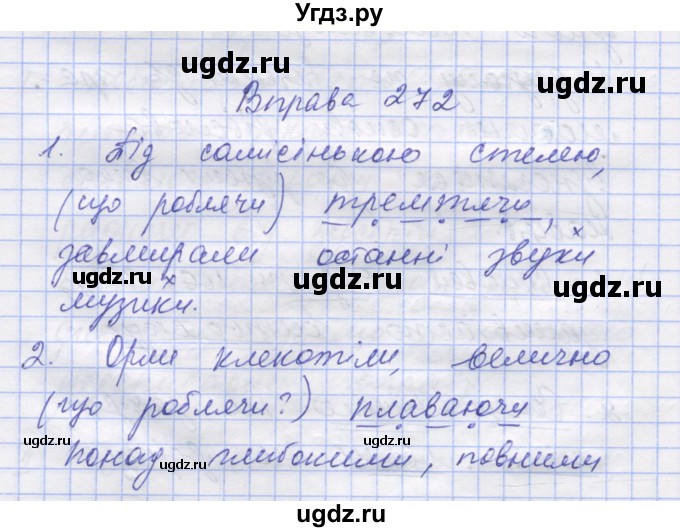 Угдз.ру
Вправа 272
1. Під самісінькою стелею,
(що роблячи) тремтячи,
завмирали останні звуки
музики.
2. Орли клекотіли, велично
(що роблячи?) плаваючи
понад глибокими, повними
ugdz.ru
ugdz.ru
ugdz.ru
ugdz.ru
ugdz.ru
ugdz.ru
ugdz.ru
ugdz.ru
ugdz.ru
ugdz.ru
ugdz.ru
ugdz.ru